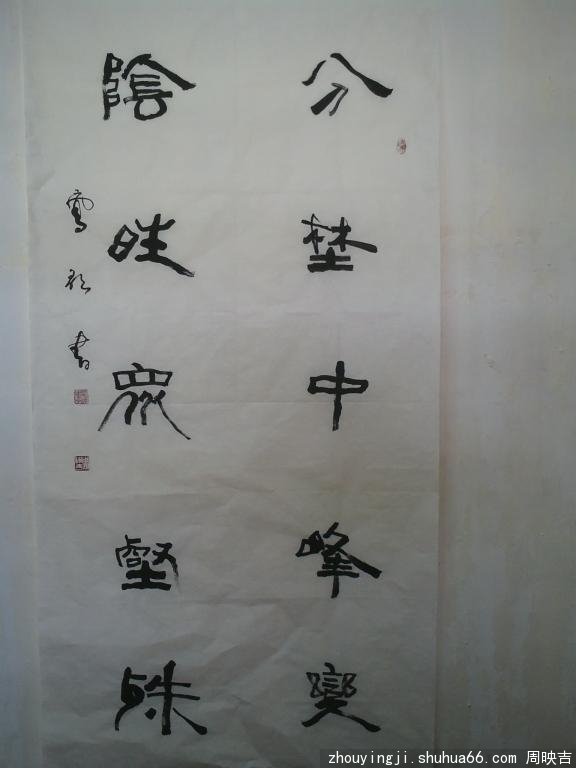 分埜中峰變
陰晴眾壑殊
書
zhouyingji.shuhua66.com 周映吉